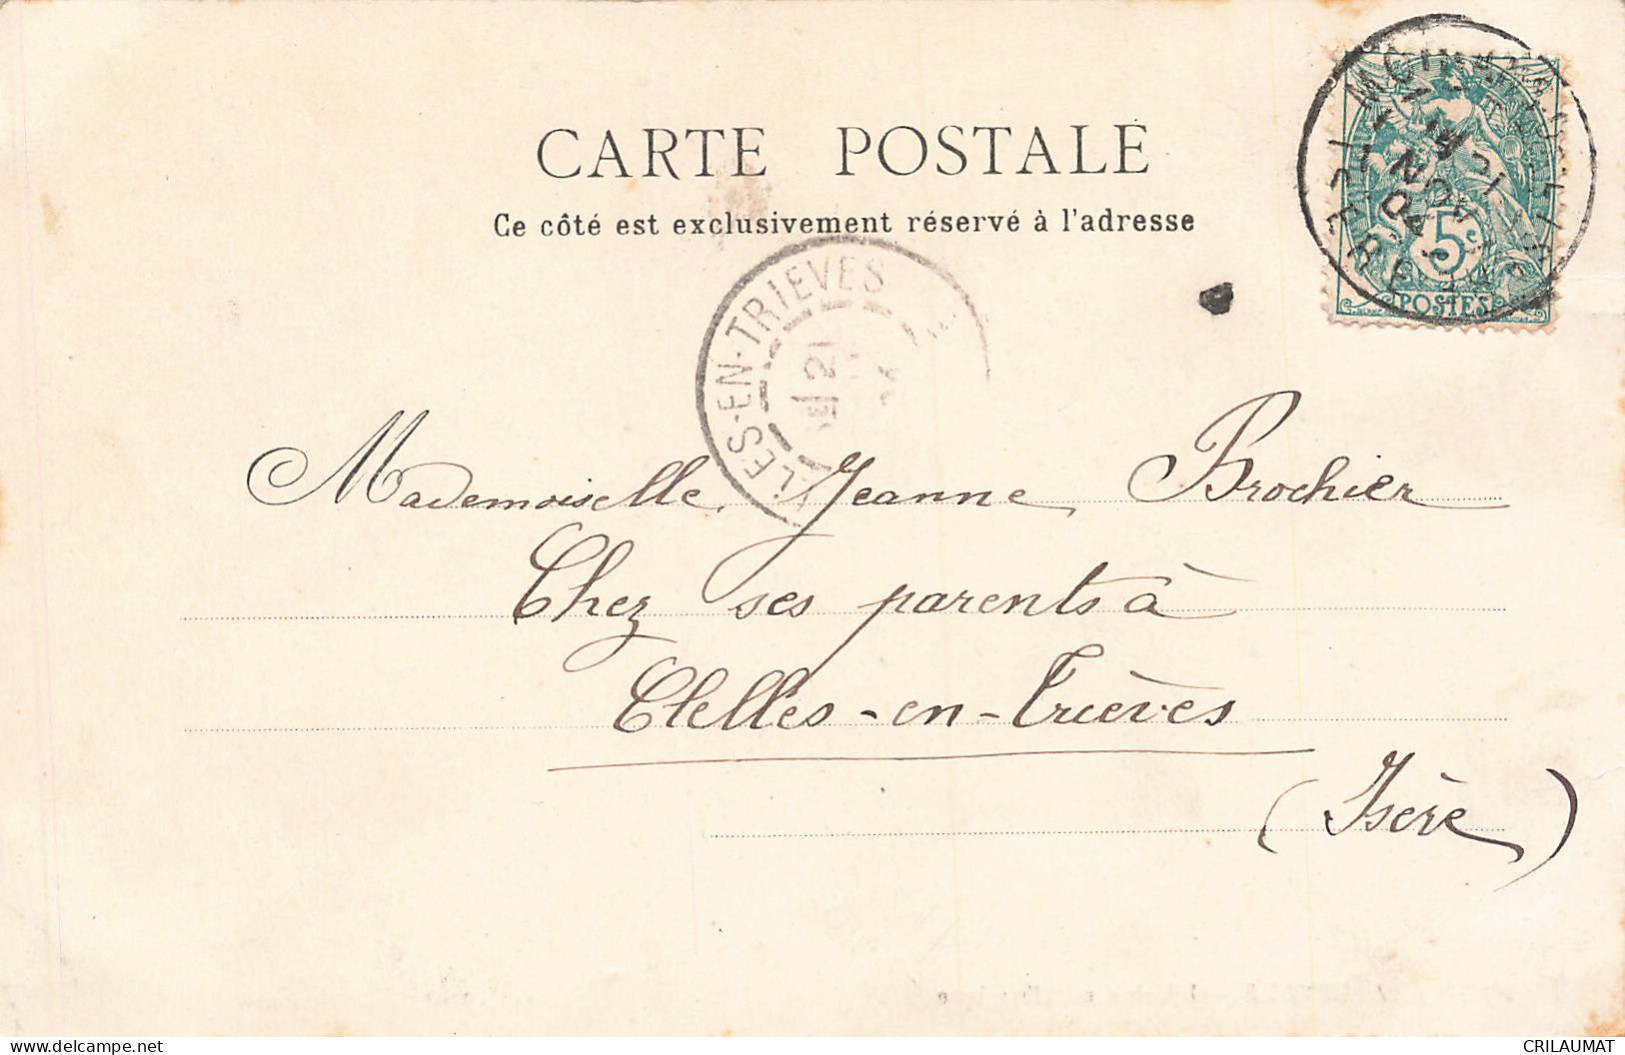 CARTE POSTALE
Ce côté est exclusivement réservé à l'adresse
5c
POSTES
LES-EN-TRIEVES
21
Mademoiselle Jeanne Brochier
Chez ses parents à
Clelles-en-Trièves
(Isère)
CRILAUMAT